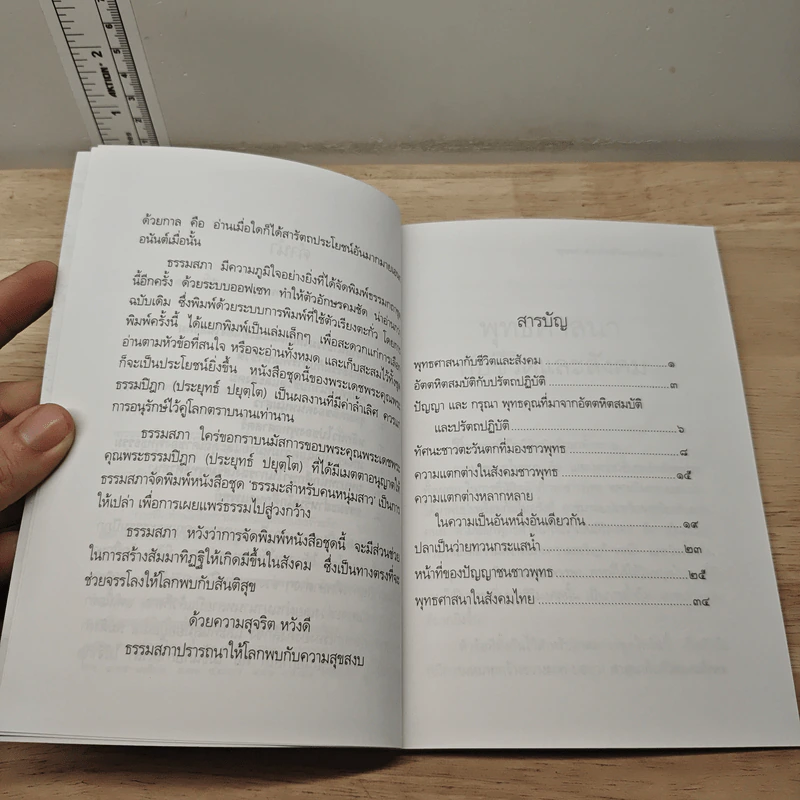 ด้วยกาล คือ อ่านเมื่อใดก็ได้สารัตถประโยชน์อันมากมาย
อนันต์เมื่อนั้น
ธรรมสภา มีความภูมิใจอย่างยิ่งที่ได้จัดพิมพ์
นี้อีกครั้ง ด้วยระบบออฟเซท ทำให้ตัวอักษรคมชัด น่าอ่าน
ฉบับเดิม ซึ่งพิมพ์ด้วยระบบการพิมพ์ที่ใช้ตัวเรียงตะกั่ว
พิมพ์ครั้งนี้ ได้แยกพิมพ์เป็นเล่มเล็กๆ เพื่อสะดวกแก่การเลือก
อ่านตามหัวข้อที่สนใจ หรือจะอ่านทั้งหมด และเก็บสะสมไว้
ก็จะเป็นประโยชน์ยิ่งขึ้น หนังสือชุดนี้ของพระเดชพระคุณพระ
ธรรมปิฎก (ประยุทธ์ ปยุตฺโต) เป็นผลงานที่มีค่าล้ำเลิศ ควรแก่
การอนุรักษ์ไว้คู่โลกตราบนานเท่านาน
ธรรมสภา ใคร่ขอกราบนมัสการขอบพระคุณพระเดชพระ
คุณพระธรรมปิฎก (ประยุทธ์ ปยุตฺโต) ที่ได้มีเมตตาอนุญาตให้
ธรรมสภาจัดพิมพ์หนังสือชุด 'ธรรมะสำหรับคนหนุ่มสาว' เป็นการ
ให้เปล่า เพื่อการเผยแพร่ธรรมไปสู่วงกว้าง
ธรรมสภา หวังว่าการจัดพิมพ์หนังสือชุดนี้ จะมีส่วนช่วย
ในการสร้างสัมมาทิฏฐิให้เกิดมีขึ้นในสังคม ซึ่งเป็นทางตรงที่จะ
ช่วยจรรโลงให้โลกพบกับสันติสุข
ด้วยความสุจริต หวังดี
ธรรมสภาปรารถนาให้โลกพบกับความสุขสงบ
สารบัญ
พุทธศาสนากับชีวิตและสังคม ๑
อัตตหิตสมบัติกับปรัตถปฏิบัติ ๓
ปัญญา และ กรุณา พุทธคุณที่มาจากอัตตหิตสมบัติ
และปรัตถปฏิบัติ ๖
ทัศนะชาวตะวันตกที่มองชาวพุทธ ๘
ความแตกต่างในสังคมชาวพุทธ ๑๕
ความแตกต่างหลากหลาย
ในความเป็นอันหนึ่งอันเดียวกัน ๑๙
ปลาเป็นว่ายทวนกระแสน้ำ ๒๓
หน้าที่ของปัญญาชนชาวพุทธ ๒๕
พุทธศาสนาในสังคมไทย ๓๔